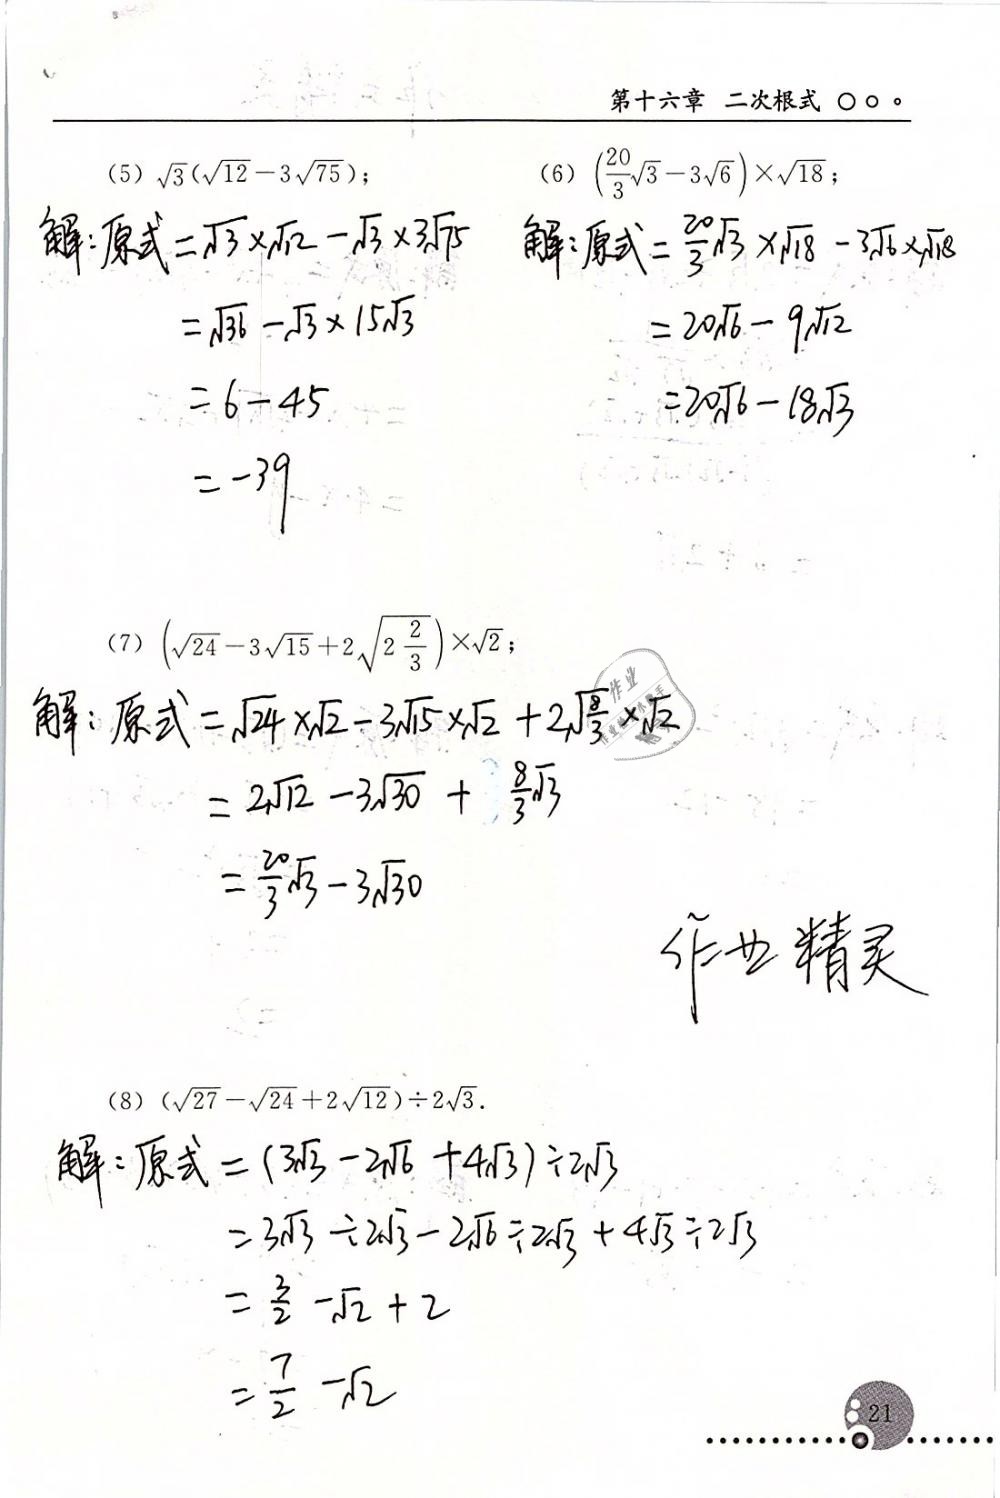 第十六章 二次根式
(5) √3(√12-3√75);
解:原式=√3×√12-√3×3√75
=√36-√3×15√3
=6-45
=-39
(6) (20/3√3-3√6)×√18;
解:原式=20/3√3×√18-3√6×√18
=20√6-9√12
=20√6-18√3
(7) (√24-3√15+2√(2 2/3))×√2;
解:原式=√24×√2-3√15×√2+2√(8/3)×√2
=2√12-3√30+8/3√3
=20/3√3-3√30
作业
作业精灵
(8) (√27-√24+2√12)÷2√3.
解:原式=(3√3-2√6+4√3)÷2√3
=3√3÷2√3-2√6÷2√3+4√3÷2√3
=3/2-√2+2
=7/2-√2
21